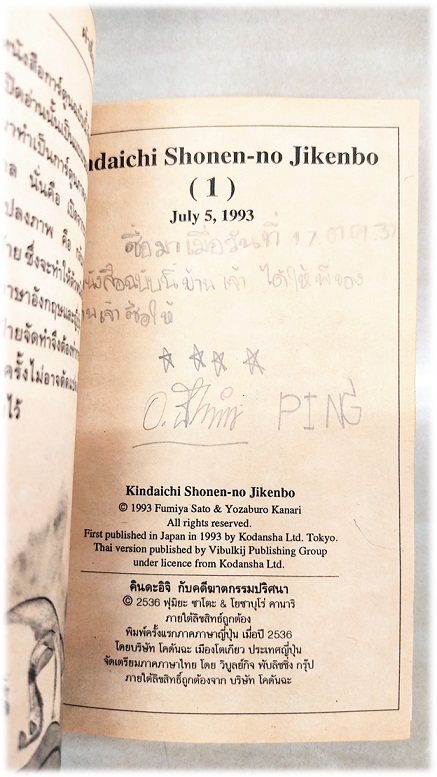 หนังสือการ์ตูน
เปิดอ่านนั้นเป็น
มาทำเป็นการ์ตูน
ล นั่นคือ เปิด
ปลงภาพ คือ
ซึ่งจะทำให้
ภาษาอังกฤษและ
ายจัดทำจึงต้อง
ครั้งไม่อาจตัด
ไว้
ndaichi Shonen-no Jikenbo
( 1 )
July 5, 1993
ซื้อมาเมื่อวันที่ 17 37
หนังสือฉบับนี้ ข้าน เจ้า ได้ให้พี่ของ
าน เจ้า ซื้อให้
PING
Kindaichi Shonen-no Jikenbo
© 1993 Fumiya Sato & Yozaburo Kanari
All rights reserved.
First published in Japan in 1993 by Kodansha Ltd. Tokyo.
Thai version published by Vibulkij Publishing Group
under licence from Kodansha Ltd.
คินดะอิจิ กับคดีฆาตกรรมปริศนา
© 2536 ฟุมิยะ ซาโตะ & โยซาบุโร่ คานาริ
ภายใต้ลิขสิทธิ์ถูกต้อง
พิมพ์ครั้งแรกภาคภาษาญี่ปุ่น เมื่อปี 2536
โดยบริษัท โคดันฉะ เมืองโตเกียว ประเทศญี่ปุ่น
จัดเตรียมภาคภาษาไทย โดย วิบูลย์กิจ พับลิชชิ่ง กรุ๊ป
ภายใต้ลิขสิทธิ์ถูกต้องจาก บริษัท โคดันฉะ